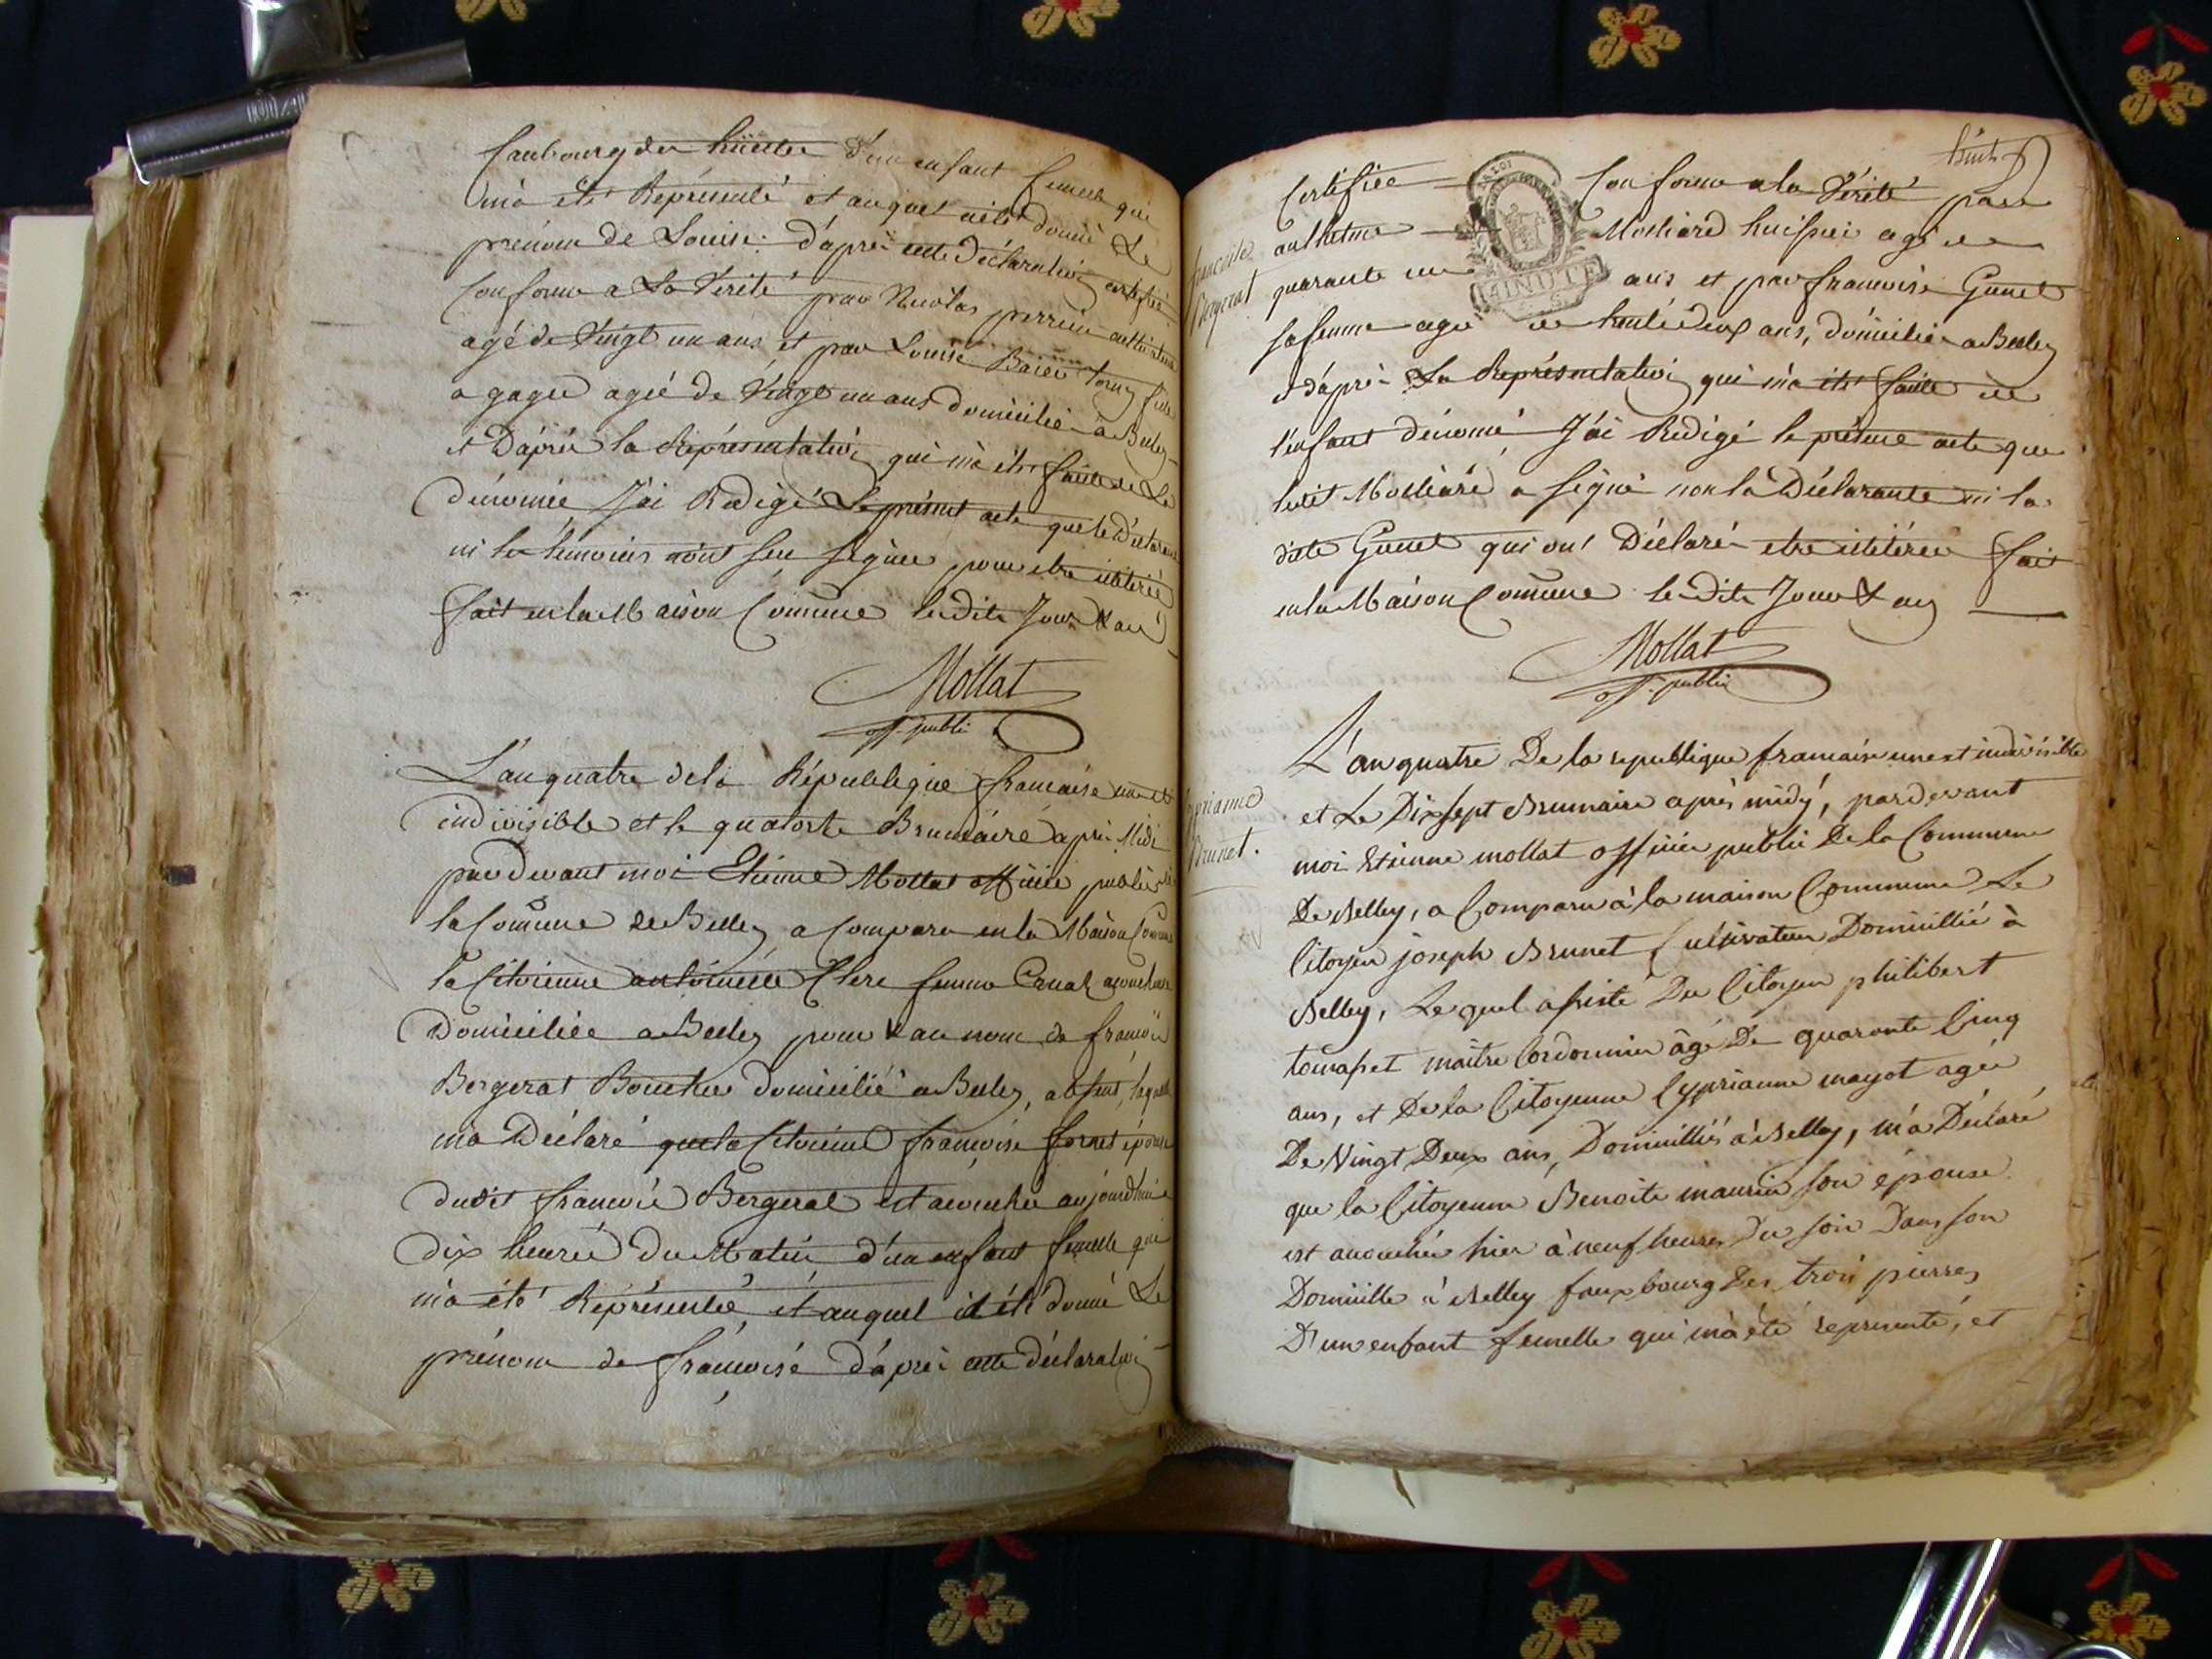 faubourg des d'un enfant femelle qui
m'a été Représenté et auquel a été donné Le
prénom de Louise. d'après cette Déclaration certifiée
Conforme a La Vérité par Nicolas perrin cultivateur
agé de Vingt un ans et par Louise fille
a gagée agée de Vingt un ans domiciliés à Belley
et D'après la Représentation qui m'a été faitte de La
dénomée J'ai Redigé Le présent acte que le Déclarant
ni les témoins n'ont seu signer pour etre illitérés
fait en la Maison Comune lesdits Jour & an
Mollat
off. public
L'an quatre de la République francaise une et
indivisible et le quatorze Brumaire après Midi
pardevant moi Etienne Mollat officier public de
la Comune de Belley a comparu en la Maison Comune
la Citoienne antoinette Clerc femme acoucheuse
Domiciliée a Belley pour & au nom de francois
Bergerat Boucher domicilié a Belley, absent, laquelle
m'a Déclaré que la Citoienne francoise fornet épouse
dudit francois Bergerat est acouchée aujourdhui a
dix heures Du Matin d'un enfant femelle qui
m'a été Représenté, et auquel il été donné Le
prénom de francoise d'après cette déclaration
trente
Certifiée Conforme a la Vérité par
francoise
Bergerat
anthelme Molliard huissier agé de
LA LOI
MINUTE
quarante un ans et par francoise Gunet
sa femme agée de trente deux ans, domiciliés a Belley
et d'après La Représentation qui m'a été faitte de
l'enfant dénomé J'ai Redigé le présent acte que
ledit Molliard a signé non la Déclarante ni la
ditte Gunet qui ont Déclaré etre illitérés fait
en la Maison Comune lesdits Jour & an
Mollat
off. public
L'an quatre De la republique francaise une et indivisible
Cyprianne
Brunet.
et Le Dix sept Brumaire après midy, pardevant
moi Etienne mollat officier public De la Commune
De Belley, a Comparu à la maison Commune Le
Citoyen joseph Brunet Cultivateur Domicillié à
Belley, Lequel assisté Du Citoyen philibert
maitre Cordonnier âgé De quarante Cinq
ans, et De la Citoyenne Cyprianne mayot agée
De Vingt Deux ans, Domicilliés à Belley, m'a Déclaré
que la Citoyenne Benoite maurin son épouse
est accouchée hier à neuf heures Du soir Dans son
Domicille à Belley fauxbourg Des trois pierres
D'un enfant femelle qui m'a été représenté, et